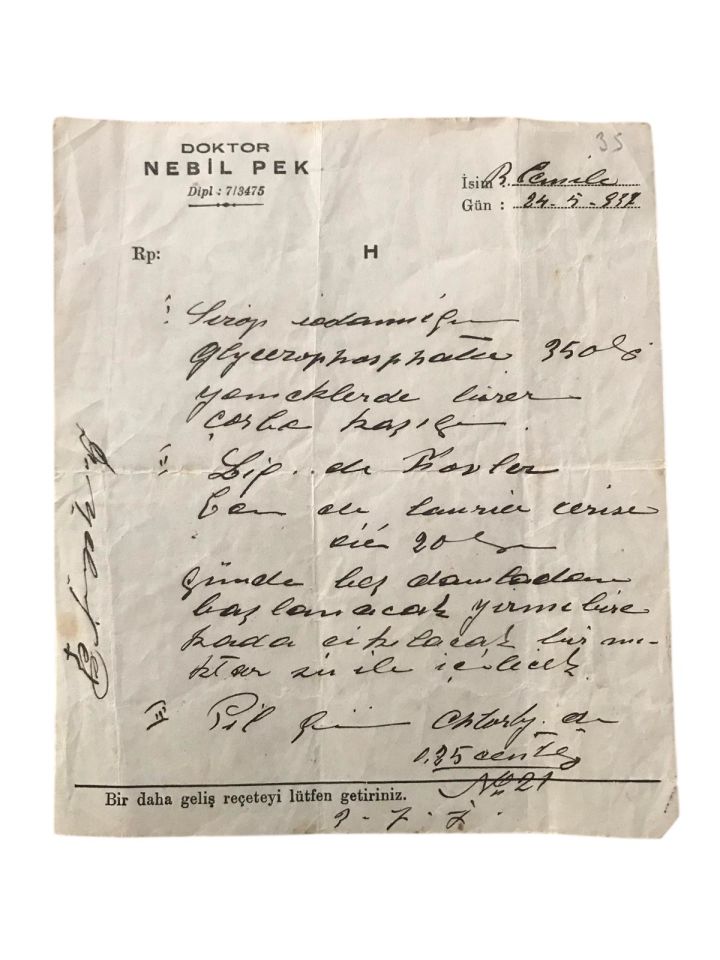 35
DOKTOR
NEBİL PEK
Dipl : 7/3475
İsim B. Cemile
Gün : 24-5-937
Rp: H
I
Sirop iodotannique
Glycerophosphate 350
yemeklerde birer
çorba kaşığı
II Liq. de Fowler
Eau de laurier cerise
20
Günde beş damladan
başlanacak yirmibire
kadar çıkılacak bir mi-
ktar su ile içilecek
III Pil
0.25
No 21
Bir daha geliş reçeteyi lütfen getiriniz.